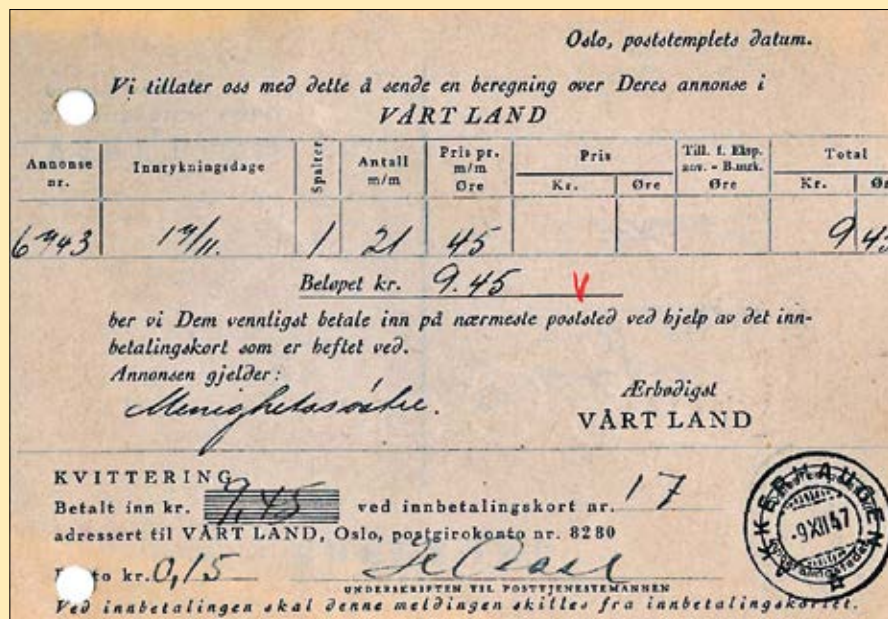 Oslo, poststemplets datum.
Vi tillater oss med dette å sende en beregning over Deres annonse i
VÅRT LAND
Annonse nr. Innrykningsdage Spalter Antall m/m Pris pr. m/m Øre Pris Kr. Øre Till. f. Eksp. nov. - B.mrk. Øre Total Kr.
17/11. 1 21 45 9
Beløpet kr. 9.45 V
ber vi Dem vennligst betale inn på nærmeste poststed ved hjelp av det inn-
betalingskort som er heftet ved.
Annonsen gjelder:
Menighetssøster.
Ærbødigst
VÅRT LAND
KVITTERING
Betalt inn kr. 9,45 ved innbetalingskort nr. 17
adressert til VÅRT LAND, Oslo, postgirokonto nr. 8280
kr. 0,15
UNDERSKRIFTEN TIL POSTTJENESTEMANNEN
Ved innbetalingen skal denne meldingen skilles fra innbetalingskortet.
AKKERHAUGEN
-9XII47